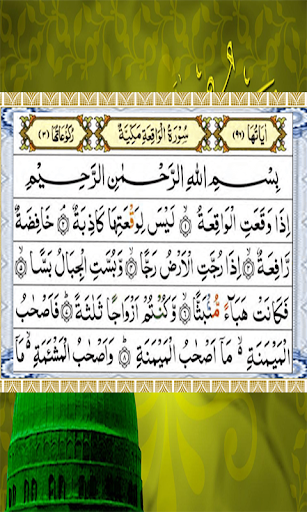 اٰیَاتُهَا (٩٦) سُوْرَةُ الْوَاقِعَةِ مَكِّيَّةٌ رُكُوْعَاتُهَا (٣)
بِسْمِ اللهِ الرَّحْمٰنِ الرَّحِيْمِ
اِذَا وَقَعَتِ الْوَاقِعَةُ ۝١ لَيْسَ لِوَقْعَتِهَا كَاذِبَةٌ ۝٢ خَافِضَةٌ
رَّافِعَةٌ ۝٣ اِذَا رُجَّتِ الْاَرْضُ رَجًّا ۝٤ وَّبُسَّتِ الْجِبَالُ بَسًّا ۝٥
فَكَانَتْ هَبَآءً مُّنْۢبَثًّا ۝٦ وَّكُنْتُمْ اَزْوَاجًا ثَلٰثَةً ۝٧ فَاَصْحٰبُ
الْمَيْمَنَةِ ۙ مَاۤ اَصْحٰبُ الْمَيْمَنَةِ ۝٨ وَاَصْحٰبُ الْمَشْـَٔمَةِ ۙ مَاۤ